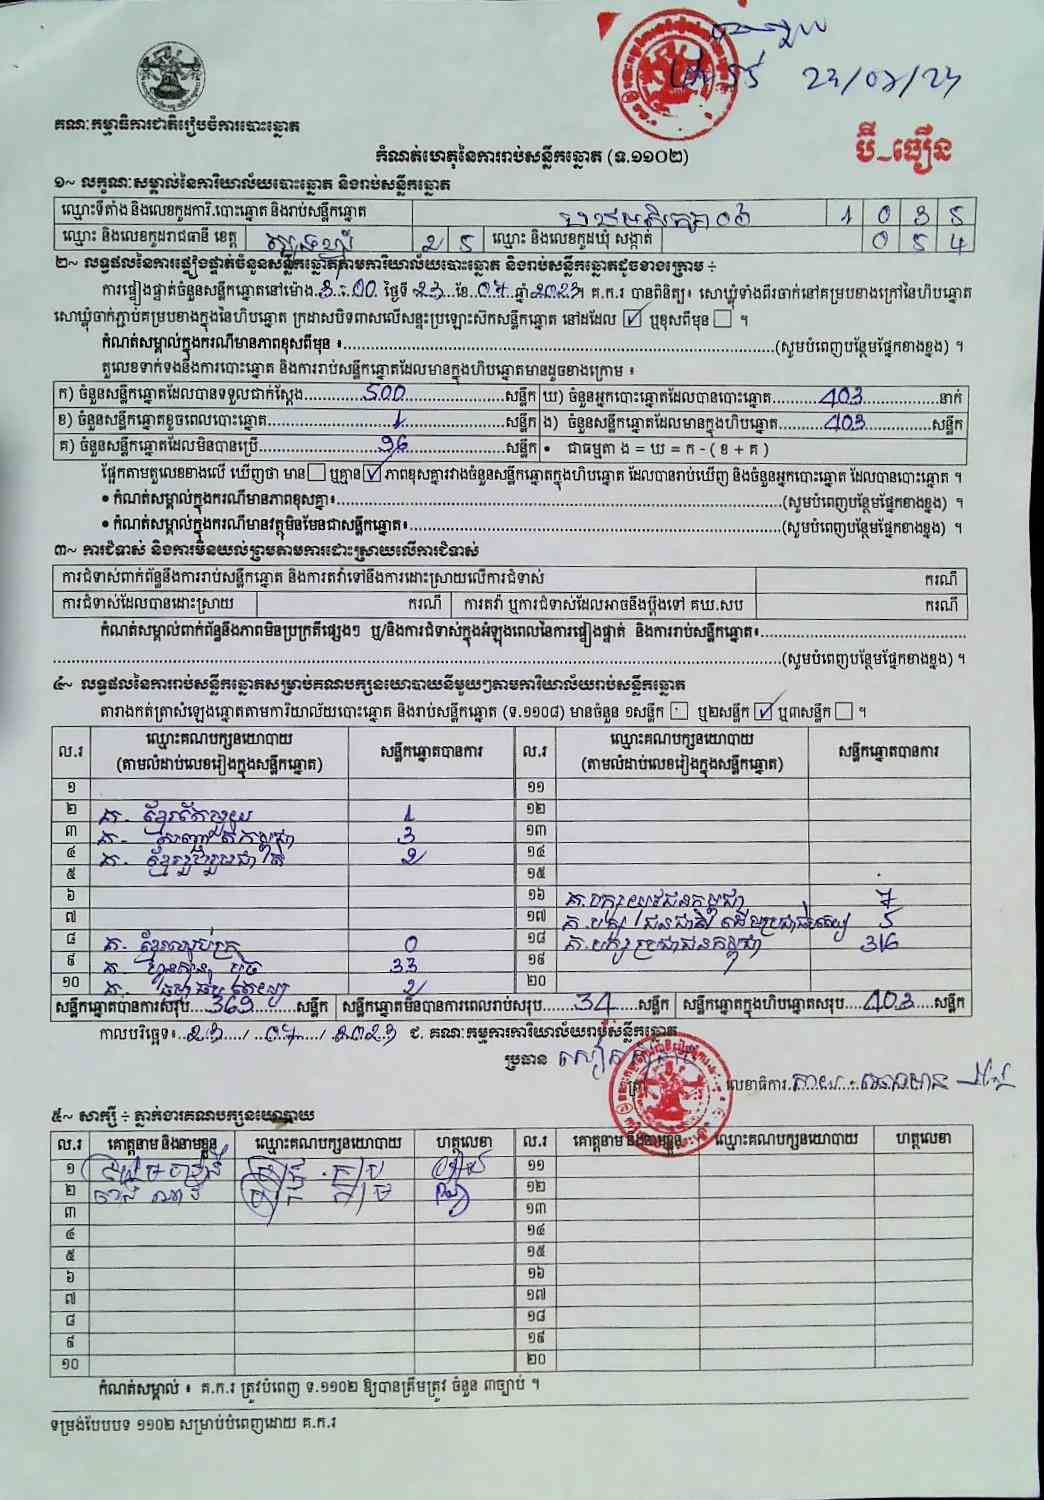 ២៤/០៦/២៤
គណៈកម្មាធិការជាតិរៀបចំការបោះឆ្នោត
កំណត់ហេតុនៃការរាប់សន្លឹកឆ្នោត (ទ.១១០២)
ប៊ី_ធឿន
១~ លក្ខណៈសម្គាល់នៃការិយាល័យបោះឆ្នោត និងរាប់សន្លឹកឆ្នោត
ឈ្មោះទីតាំង និងលេខកូដការិ.បោះឆ្នោត និងរាប់សន្លឹកឆ្នោត 1 0 3 5
ឈ្មោះ និងលេខកូដរាជធានី ខេត្ត ត្បូងឃ្មុំ 2 5 ឈ្មោះ និងលេខកូដឃុំ សង្កាត់ 0 5 4
២~ លទ្ធផលនៃការផ្ទៀងផ្ទាត់ចំនួនសន្លឹកឆ្នោតតាមការិយាល័យបោះឆ្នោត និងរាប់សន្លឹកឆ្នោតដូចខាងក្រោម ÷
ការផ្ទៀងផ្ទាត់ចំនួនសន្លឹកឆ្នោតនៅម៉ោង.3:00 ថ្ងៃទី 23 ខែ 07 ឆ្នាំ 2023។ គ.ក.រ បានពិនិត្យ៖ សោឃ្លុំទាំងពីរចាក់នៅគម្របខាងក្រៅនៃហិបឆ្នោត
សោឃ្លុំចាក់ភ្ជាប់គម្របខាងក្នុងនៃហិបឆ្នោត ក្រដាសបិទពាសលើសន្ទះប្រឡោះស៊កសន្លឹកឆ្នោត នៅដដែល ☑ ឬខុសពីមុន ☐ ។
កំណត់សម្គាល់ក្នុងករណីមានភាពខុសពីមុន ៖...(សូមបំពេញបន្ថែមផ្នែកខាងខ្នង) ។
តួលេខទាក់ទងនឹងការបោះឆ្នោត និងការរាប់សន្លឹកឆ្នោតដែលមានក្នុងហិបឆ្នោតមានដូចខាងក្រោម ៖
ក) ចំនួនសន្លឹកឆ្នោតដែលបានទទួលជាក់ស្តែង...500...សន្លឹក ឃ) ចំនួនអ្នកបោះឆ្នោតដែលបានបោះឆ្នោត...403...នាក់
ខ) ចំនួនសន្លឹកឆ្នោតខូចពេលបោះឆ្នោត...1...សន្លឹក ង) ចំនួនសន្លឹកឆ្នោតដែលមានក្នុងហិបឆ្នោត...403...សន្លឹក
គ) ចំនួនសន្លឹកឆ្នោតដែលមិនបានប្រើ...96...សន្លឹក • ជាធម្មតា ង = ឃ = ក - ( ខ + គ )
ផ្អែកតាមតួលេខខាងលើ ឃើញថា មាន ☐ ឬគ្មាន ☑ ភាពខុសគ្នារវាងចំនួនសន្លឹកឆ្នោតក្នុងហិបឆ្នោត ដែលបានរាប់ឃើញ និងចំនួនអ្នកបោះឆ្នោត ដែលបានបោះឆ្នោត ។
• កំណត់សម្គាល់ក្នុងករណីមានភាពខុសគ្នា៖...(សូមបំពេញបន្ថែមផ្នែកខាងខ្នង) ។
• កំណត់សម្គាល់ក្នុងករណីមានវត្ថុមិនមែនជាសន្លឹកឆ្នោត៖...(សូមបំពេញបន្ថែមផ្នែកខាងខ្នង) ។
៣~ ការជំទាស់ និងការមិនយល់ព្រមតាមការដោះស្រាយលើការជំទាស់
ការជំទាស់ពាក់ព័ន្ធនឹងការរាប់សន្លឹកឆ្នោត និងការតវ៉ាទៅនឹងការដោះស្រាយលើការជំទាស់ ករណី
ការជំទាស់ដែលបានដោះស្រាយ ករណី ការតវ៉ា ឬការជំទាស់ដែលអាចនឹងប្តឹងទៅ គឃ.សប ករណី
កំណត់សម្គាល់ពាក់ព័ន្ធនឹងភាពមិនប្រក្រតីផ្សេងៗ ឬ/និងការជំទាស់ក្នុងអំឡុងពេលនៃការផ្ទៀងផ្ទាត់ និងការរាប់សន្លឹកឆ្នោត៖...
...(សូមបំពេញបន្ថែមផ្នែកខាងខ្នង) ។
៤~ លទ្ធផលនៃការរាប់សន្លឹកឆ្នោតសម្រាប់គណបក្សនយោបាយនីមួយៗតាមការិយាល័យរាប់សន្លឹកឆ្នោត
តារាងកត់ត្រាសំឡេងឆ្នោតតាមការិយាល័យបោះឆ្នោត និងរាប់សន្លឹកឆ្នោត (ទ.១១០៨) មានចំនួន ១សន្លឹក ☐ ឬ២សន្លឹក ☑ ឬ៣សន្លឹក ☐ ។
ល.រ ឈ្មោះគណបក្សនយោបាយ (តាមលំដាប់លេខរៀងក្នុងសន្លឹកឆ្នោត) សន្លឹកឆ្នោតបានការ ល.រ ឈ្មោះគណបក្សនយោបាយ (តាមលំដាប់លេខរៀងក្នុងសន្លឹកឆ្នោត) សន្លឹកឆ្នោតបានការ
១ ១១
២ 1 ១២
៣ 3 ១៣
៤ គ. ខ្មែររួបរួមជាតិ 2 ១៤
៥ ១៥
៦ ១៦ 7
៧ ១៧ 5
៨ 0 ១៨ គ.បក្សប្រជាជនកម្ពុជា 316
៩ គ. ហ្វុនស៊ិនប៉ិច 33 ១៩
១០ 2 ២០
សន្លឹកឆ្នោតបានការសរុប...369...សន្លឹក សន្លឹកឆ្នោតមិនបានការពេលរាប់សរុប...34...សន្លឹក សន្លឹកឆ្នោតក្នុងហិបឆ្នោតសរុប...403...សន្លឹក
កាលបរិច្ឆេទ៖ 23 / 07 / 2023 ជ. គណៈកម្មការការិយាល័យរាប់សន្លឹកឆ្នោត
ប្រធាន
លេខាធិការ
៥~ សាក្សី ÷ ភ្នាក់ងារគណបក្សនយោបាយ
ល.រ គោត្តនាម និងនាមខ្លួន ឈ្មោះគណបក្សនយោបាយ ហត្ថលេខា ល.រ គោត្តនាម និងនាមខ្លួន ឈ្មោះគណបក្សនយោបាយ ហត្ថលេខា
១ ១១
២ ១២
៣ ១៣
៤ ១៤
៥ ១៥
៦ ១៦
៧ ១៧
៨ ១៨
៩ ១៩
១០ ២០
កំណត់សម្គាល់ ៖ គ.ក.រ ត្រូវបំពេញ ទ.១១០២ ឱ្យបានត្រឹមត្រូវ ចំនួន ៣ច្បាប់ ។
ទម្រង់បែបបទ ១១០២ សម្រាប់បំពេញដោយ គ.ក.រ